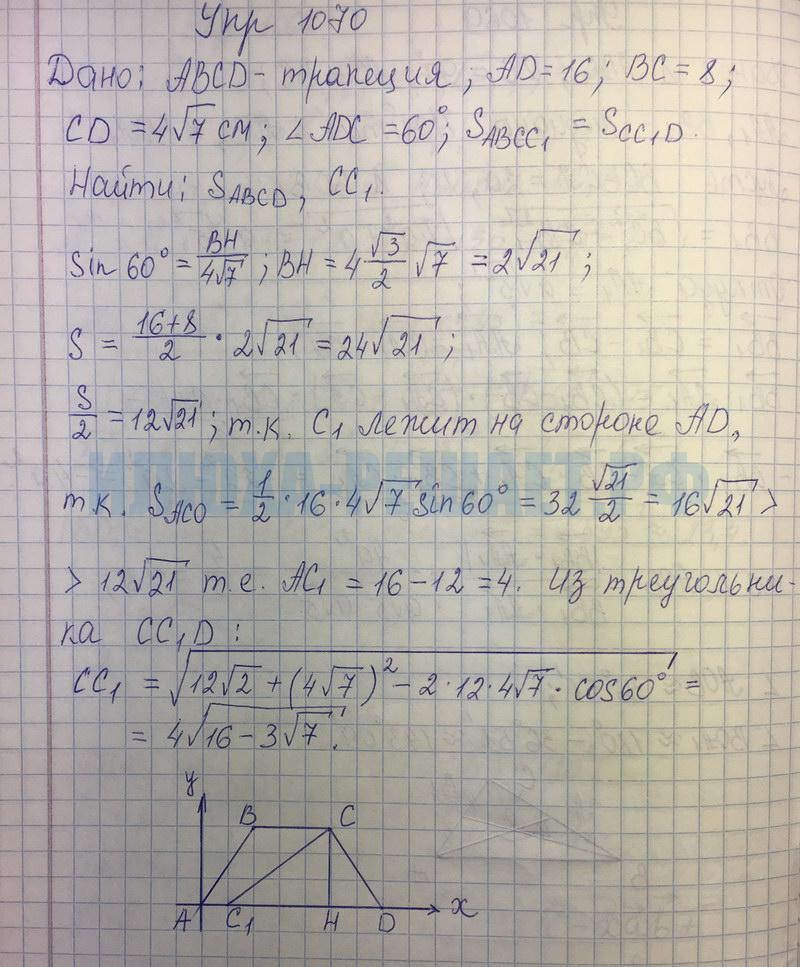 Упр 1070
Дано: ABCD - трапеция; AD = 16; BC = 8;
CD = 4√7 см; ∠ADC = 60°; S_ABCC₁ = S_CC₁D.
Найти: S_ABCD, CC₁.
Sin 60° = BH/4√7; BH = 4 · √3/2 √7 = 2√21;
S = (16+8)/2 · 2√21 = 24√21;
S/2 = 12√21; т.к. C₁ лежит на стороне AD,
т.к. S_ACO = 1/2 · 16 · 4√7 sin 60° = 32 √21/2 = 16√21 >
> 12√21 т.е. AC₁ = 16 - 12 = 4. Из треугольни-
ка CC₁D:
CC₁ = √(12√2 + (4√7)² - 2 · 12 · 4√7 · cos 60°) =
= 4√(16 - 3√7).
y
B C
A C₁ H D x